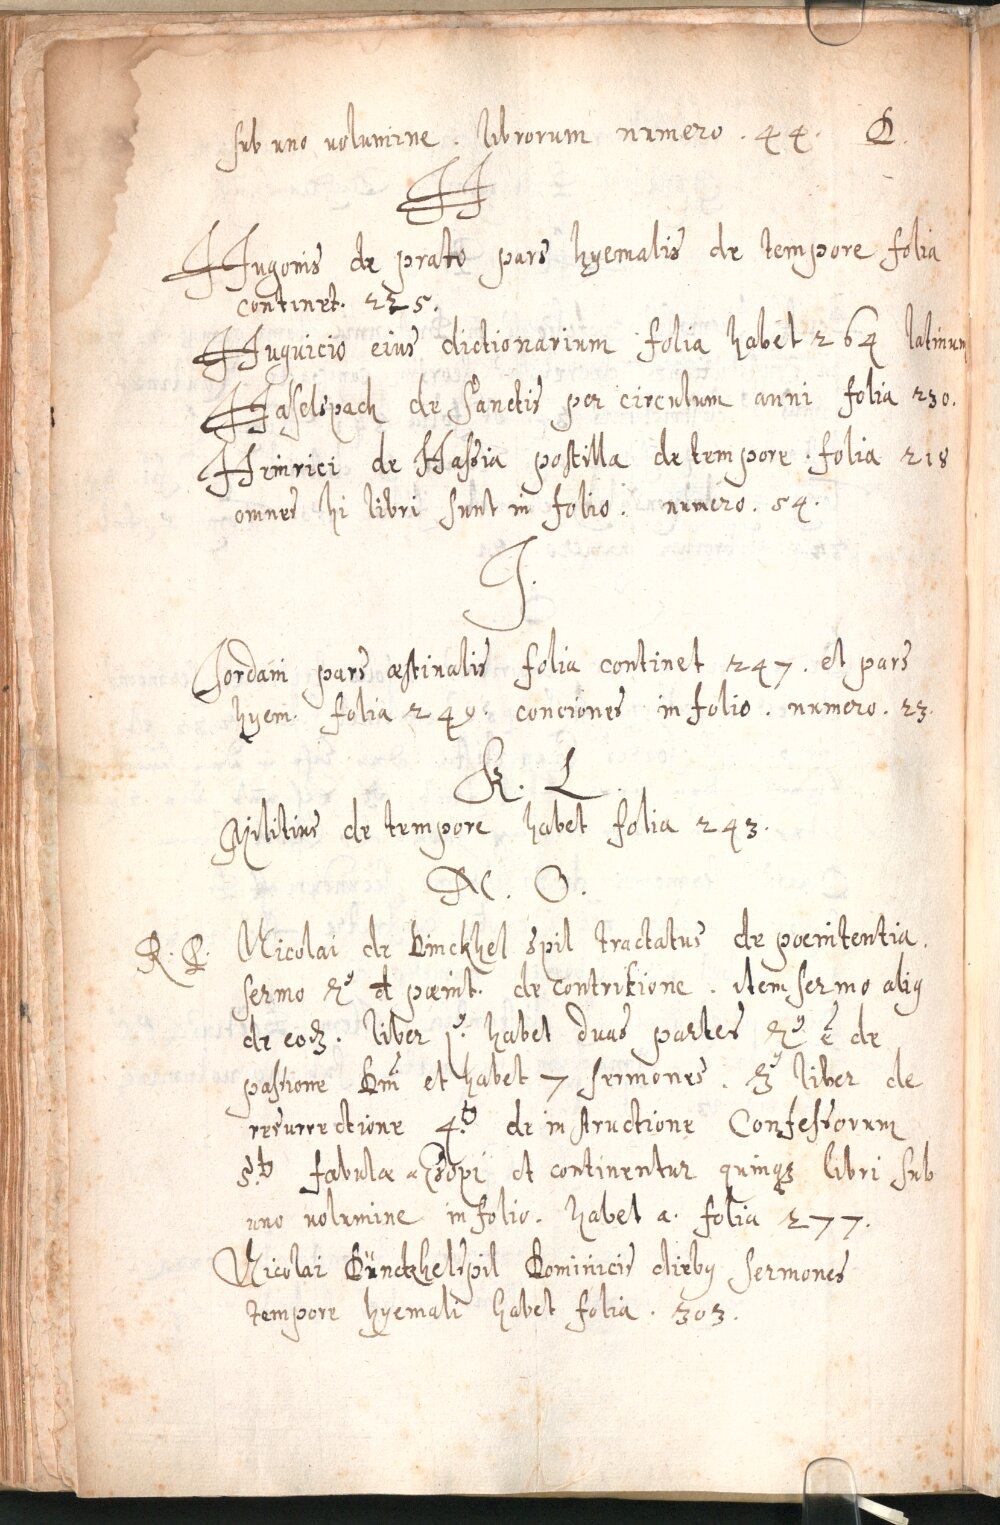 sub uno uolumine. librorum numero. 44. D.
H
Hugonis de prato pars hyemalis de tempore folia
continet. 225.
Huguicio eius dictionarium folia habet 264 latinum
Haselspach de Sanctis per circulum anni folia 230.
Heinrici de Hassia postilla de tempore. folia 218
omnes hi libri sunt in folio. numero. 54.
J.
Jordani pars æstiualis folia continet 247. et pars
hyem. folia 249. conciones in folio. numero. 23.
K. L
Militius de tempore habet folia 243.
N. O.
R. P. Nicolai de Dinckhel spil tractatus de poenitentia.
sermo 2us de pœnit. de contritione. item sermo aliq
de eoq3. liber 1us. habet duas partes 2us e de
passione Dni et habet 7 sermones. 3us liber de
resurrectione 4.tus de instructione Confessorum
5.tus fabulæ Æsopi et continentur quinq3 libri sub
uno uolumine in folio. habet a. folia 277.
Nicolai Dünckhelspil Dominicis dieby sermones
tempore hyemali habet folia. 303.